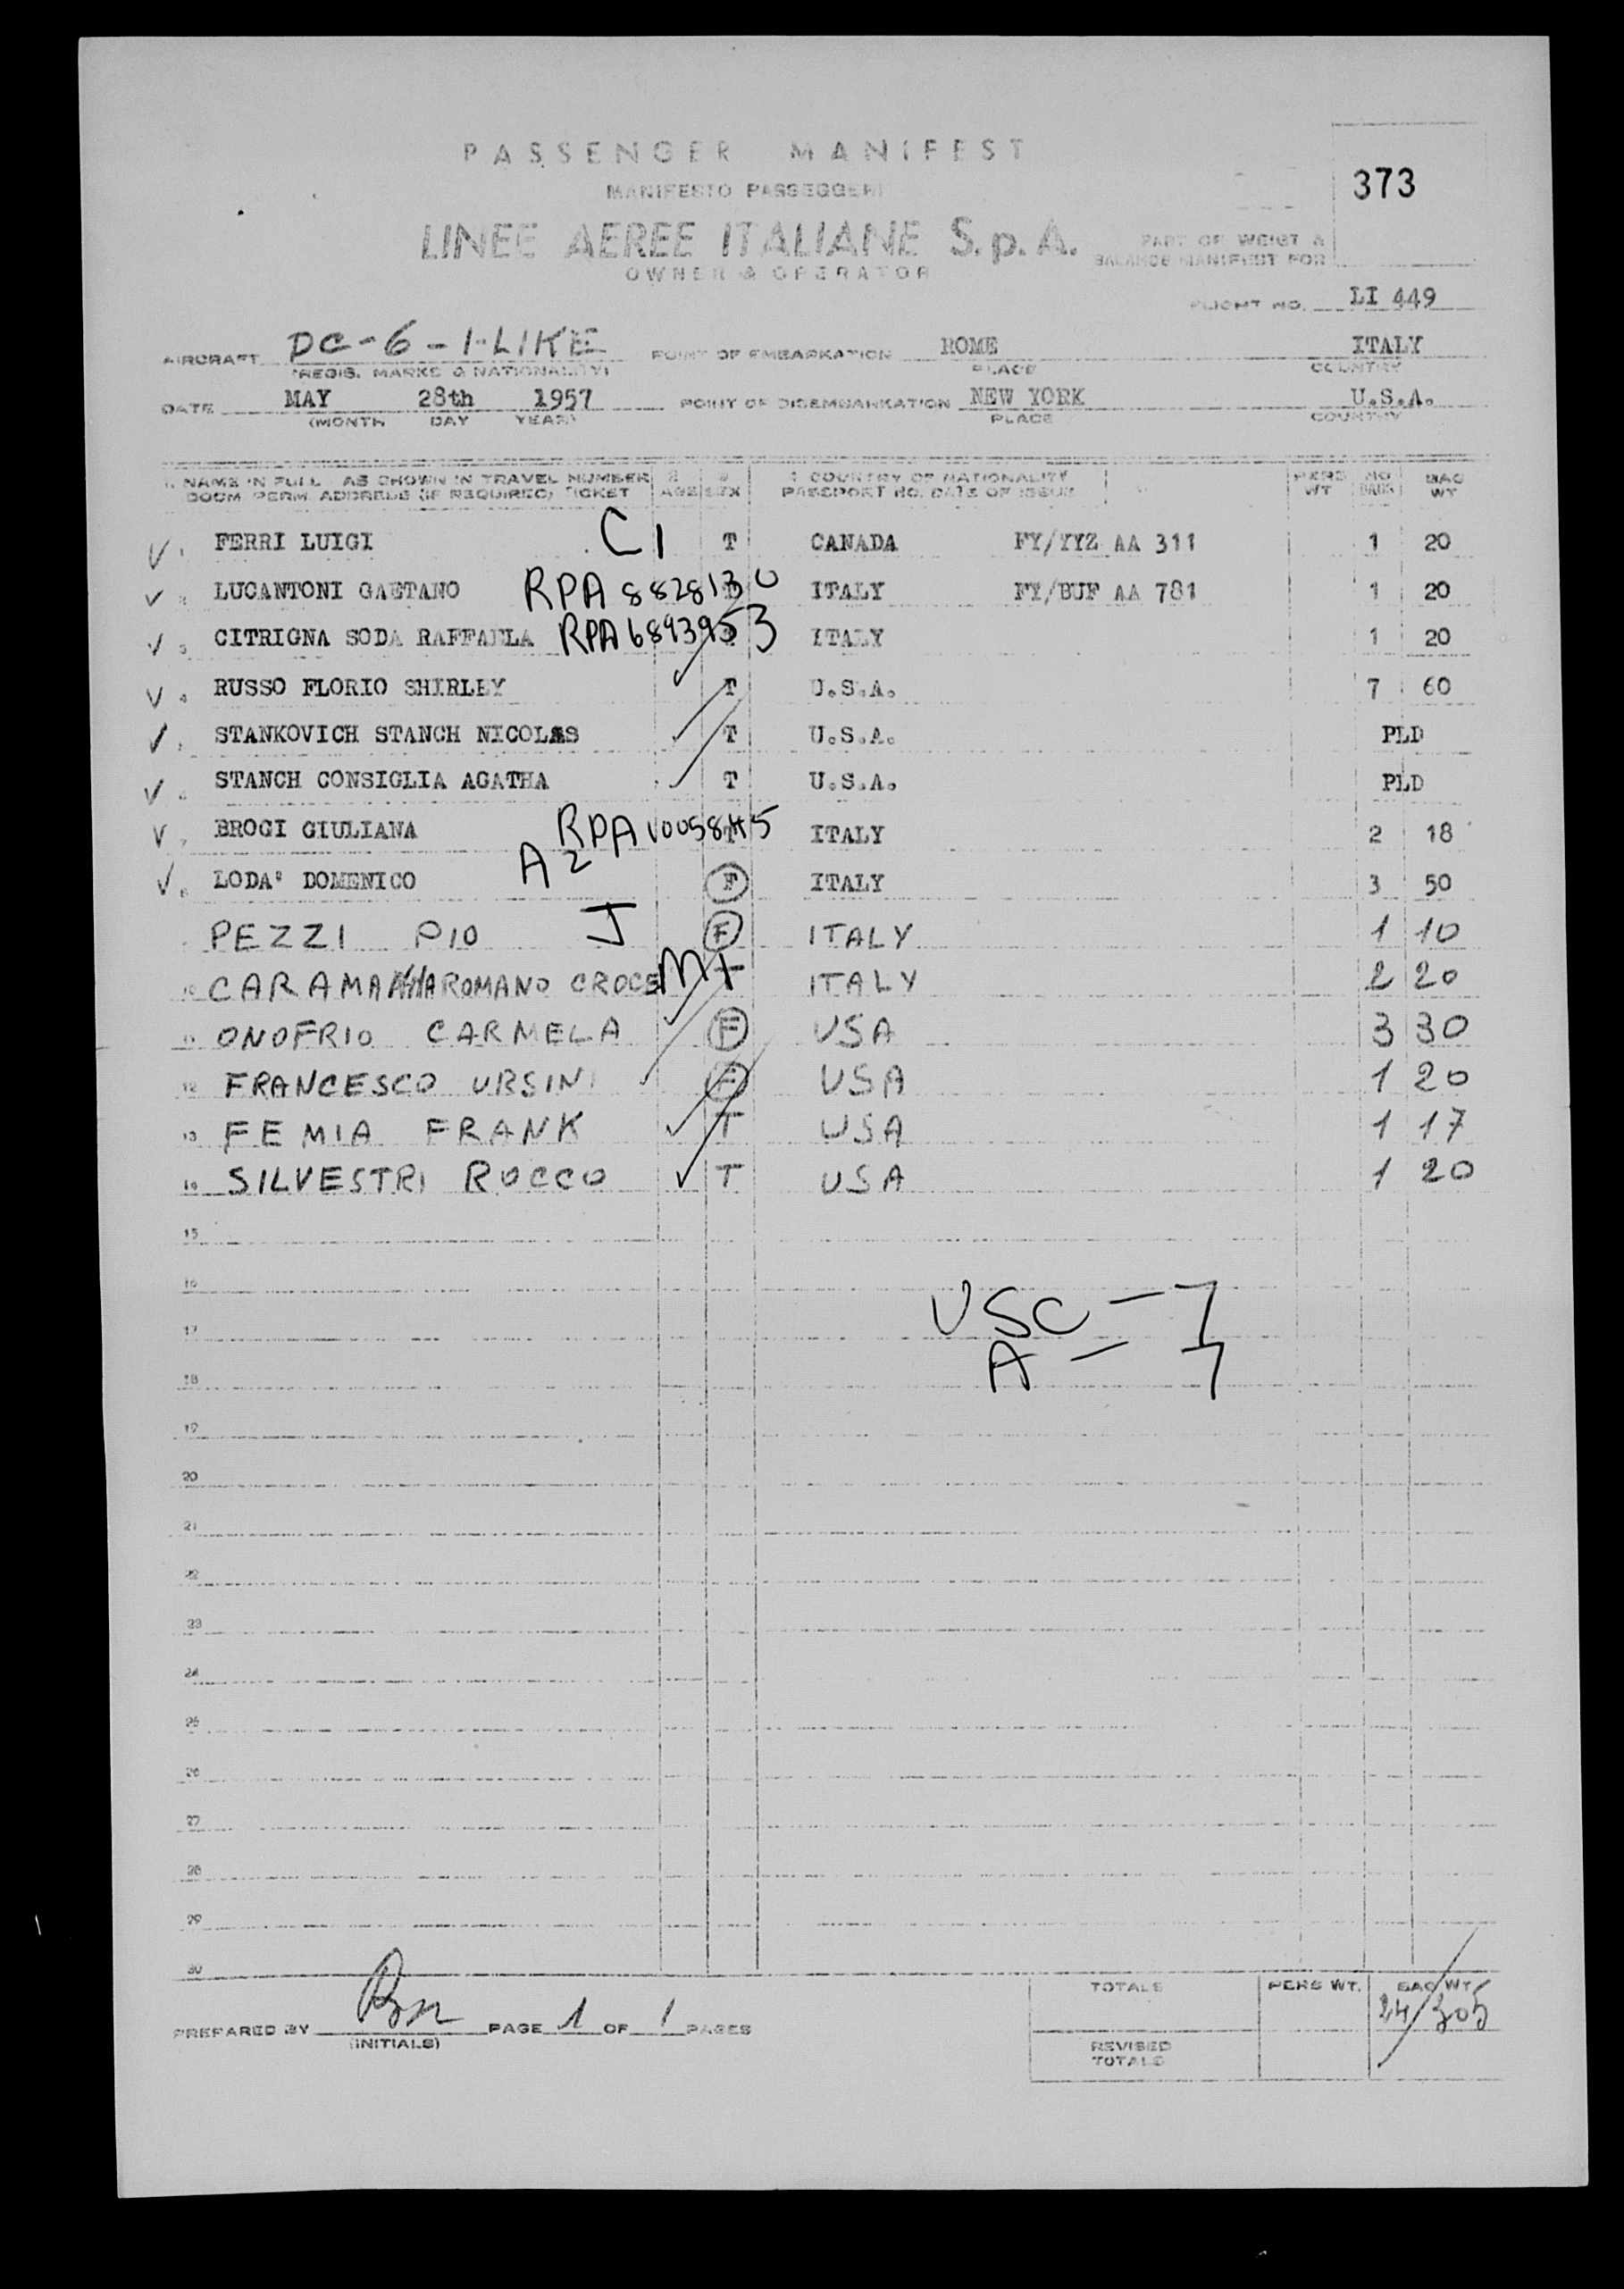 PASSENGER MANIFEST
MANIFESTO PASSEGGERI
373
LINEE AEREE ITALIANE S.p.A.
OWNER & OPERATOR
PART OF WEIGT &
BALANCE MANIFEST FOR
FLIGHT NO. LI 449
AIRCRAFT DC-6-I-LIKE POINT OF EMBARKATION ROME ITALY
(REGIS. MARKS & NATIONALITY) PLACE COUNTRY
DATE MAY 28th 1957 POINT OF DISEMBARKATION NEW YORK U.S.A.
(MONTH DAY YEAR) PLACE COUNTRY
1. NAME IN FULL AS SHOWN IN TRAVEL NUMBER 2 3 4 COUNTRY OF NATIONALITY PERS NO BAG
DOCM PERM. ADDRESS (IF REQUIRED) TICKET AGE SEX PASSPORT NO. DATE OF ISSUE WT BAGS WT
1 FERRI LUIGI C1 T CANADA FY/YYZ AA 311 1 20
2 LUCANTONI GAETANO RPA 8828130 ITALY FY/BUF AA 781 1 20
3 CITRIGNA SODA RAFFAELA RPA 6893953 ITALY 1 20
4 RUSSO FLORIO SHIRLEY T U.S.A. 7 60
5 STANKOVICH STANCH NICOLAS T U.S.A. PLD
6 STANCH CONSIGLIA AGATHA T U.S.A. PLD
7 BROGI GIULIANA RPA 1005845 T ITALY 2 18
8 LODA' DOMENICO A2 F ITALY 3 50
PEZZI PIO J F ITALY 1 10
10 ROMANO CROCE M T ITALY 2 20
11 ONOFRIO CARMELA F USA 3 30
12 FRANCESCO URSINI F USA 1 20
13 FEMIA FRANK T USA 1 17
14 SILVESTRI ROCCO T USA 1 20
15
16
USC - 7
17
A - 7
18
19
20
21
22
23
24
25
26
27
28
29
30
TOTALS PERS WT. BAG WT.
24/305
PREPARED BY PAGE 1 OF 1 PAGES
(INITIALS)
REVISED
TOTALS